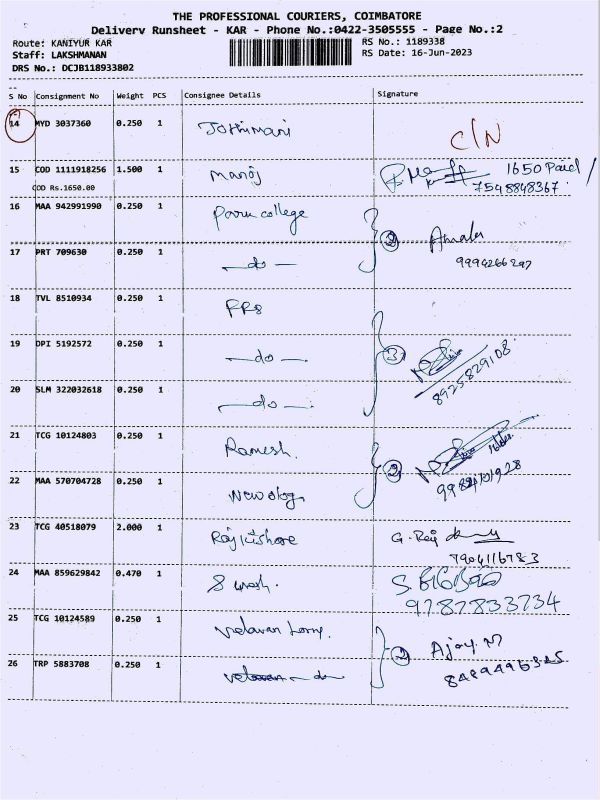 THE PROFESSIONAL COURIERS, COIMBATORE
Delivery Runsheet - KAR - Phone No.:0422-3505555 - Page No.:2
Route: KANIYUR KAR
RS No.: 1189338
Staff: LAKSHMANAN
RS Date: 16-Jun-2023
DRS No.: DCJB118933802
S No Consignment No Weight PCS Consignee Details Signature
14 MYD 3037360 0.250 1 Jothimani C/N
15 COD 1111918256 1.500 1 Manoj 1650 Paid
COD Rs.1650.00 7548848367
16 MAA 942991990 0.250 1 college 2 Amala
17 PRT 709630 0.250 1 — do — 9994266297
18 TVL 8510934 0.250 1
19 DPI 5192572 0.250 1 — do — 3 8925829108
20 SLM 322032618 0.250 1 — do —
21 TCG 10124803 0.250 1 Ramesh. 2
22 MAA 570704728 0.250 1
23 TCG 40518079 2.000 1 Rajkishore G. Raj
7904116783
24 MAA 859629842 0.470 1 Suresh.
9787833734
25 TCG 10124589 0.250 1 Velavan 2 Ajay.M
26 TRP 5883708 0.250 1 — do — 8489496325